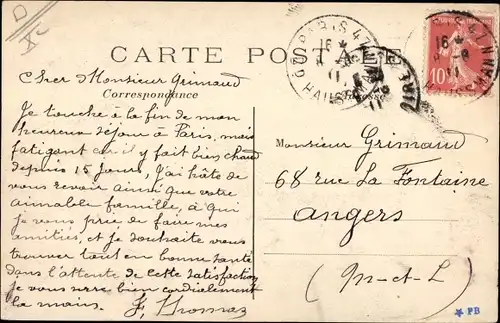 CARTE POSTALE
Correspondance
Cher Monsieur Grimaud
Je touche à la fin de mon
heureux séjour à Paris, mais
fatigant car il y fait bien chaud
depuis 15 jours, J'ai hâte de
vous revoir ainsi que votre
aimable famille, à qui
je vous prie de faire mes
amitiés, et je souhaite vous
trouver tout en bonne santé
dans l'attente de cette satisfaction
je vous serre bien cordialement
la main. J. Thomas
Monsieur Grimaud
68 rue La Fontaine
Angers
(M-et-L)
PARIS 47
16
10
PB